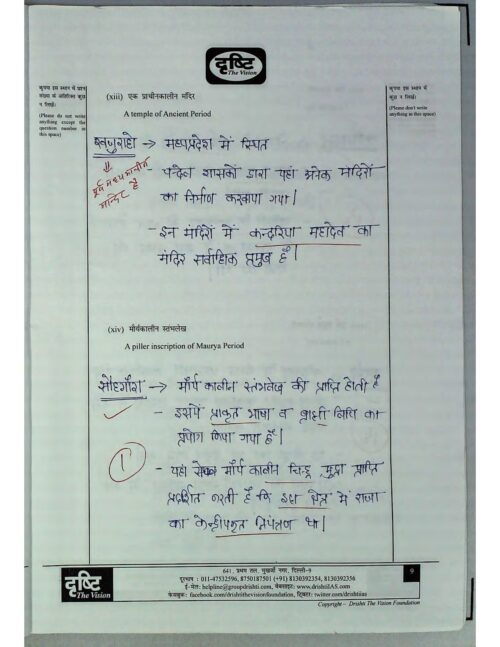 दृष्टि
The Vision
कृपया इस स्थान में प्रश्न
संख्या के अतिरिक्त कुछ
न लिखें।
(Please do not write
anything except the
question number in
this space)
कृपया इस स्थान में
कुछ न लिखें।
(Please don't write
anything in this space)
(xiii) एक प्राचीनकालीन मंदिर
A temple of Ancient Period
खजुराहो → मध्यप्रदेश में स्थित
पूर्व मध्यकालीन
मन्दिर है
- चन्देल शासकों द्वारा यहां अनेक मंदिरों
का निर्माण करवाया गया।
- इन मंदिरों में कन्दरिया महादेव का
मंदिर सर्वाधिक प्रमुख है।
(xiv) मौर्यकालीन स्तंभलेख
A piller inscription of Maurya Period
सोहगौरा → मौर्य कालीन स्तंभलेख की प्राप्ति होती है
- इसमें प्राकृत भाषा व ब्राह्मी लिपि का
प्रयोग किया गया है।
1
- यहां से मौर्य कालीन चिह्न, मुद्रा प्राप्ति
प्रदर्शित करती है कि इस क्षेत्र में राजा
का केन्द्रीयकृत नियंत्रण था।
दृष्टि
The Vision
641, प्रथम तल, मुखर्जी नगर, दिल्ली-9
दूरभाष : 011-47532596, 8750187501 (+91) 8130392354, 8130392356
ई-मेल: helpline@groupdrishti.com, वेबसाइट: www.drishtiIAS.com
फेसबुक: facebook.com/drishtithevisionfoundation, ट्विटर: twitter.com/drishtiias
9
Copyright – Drishti The Vision Foundation